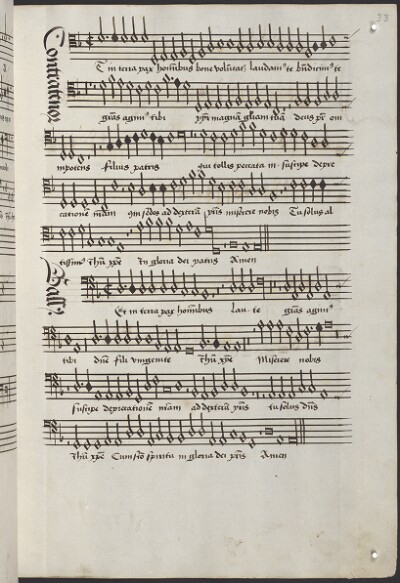 33
Contratenor
Et in terra pax hominibus bone volūtat. laudamꝰ te bn̄dicimꝰ te
gr̄as agimꝰ tibi ppt̄ magnā gliam tuā deus pr̄ om
nipotens filius patris qui tollis peccata m. suscipe depre
cationē nr̄am qui sedes ad dexterā pr̄is miserere nobis Tu solus al
tissimꝰ Ihū xpē In gloria dei patris Amen
Bassꝰ
Et in terra pax hominibus lau. te gr̄as agimꝰ
tibi dn̄e fili unigenite Ihū xpē Miserere nobis
suscipe deprecationē nr̄am ad dexterā pr̄is tu solus dn̄s
Ihū xpē Cum sc̄o spiritu in gloria dei pr̄is Amen